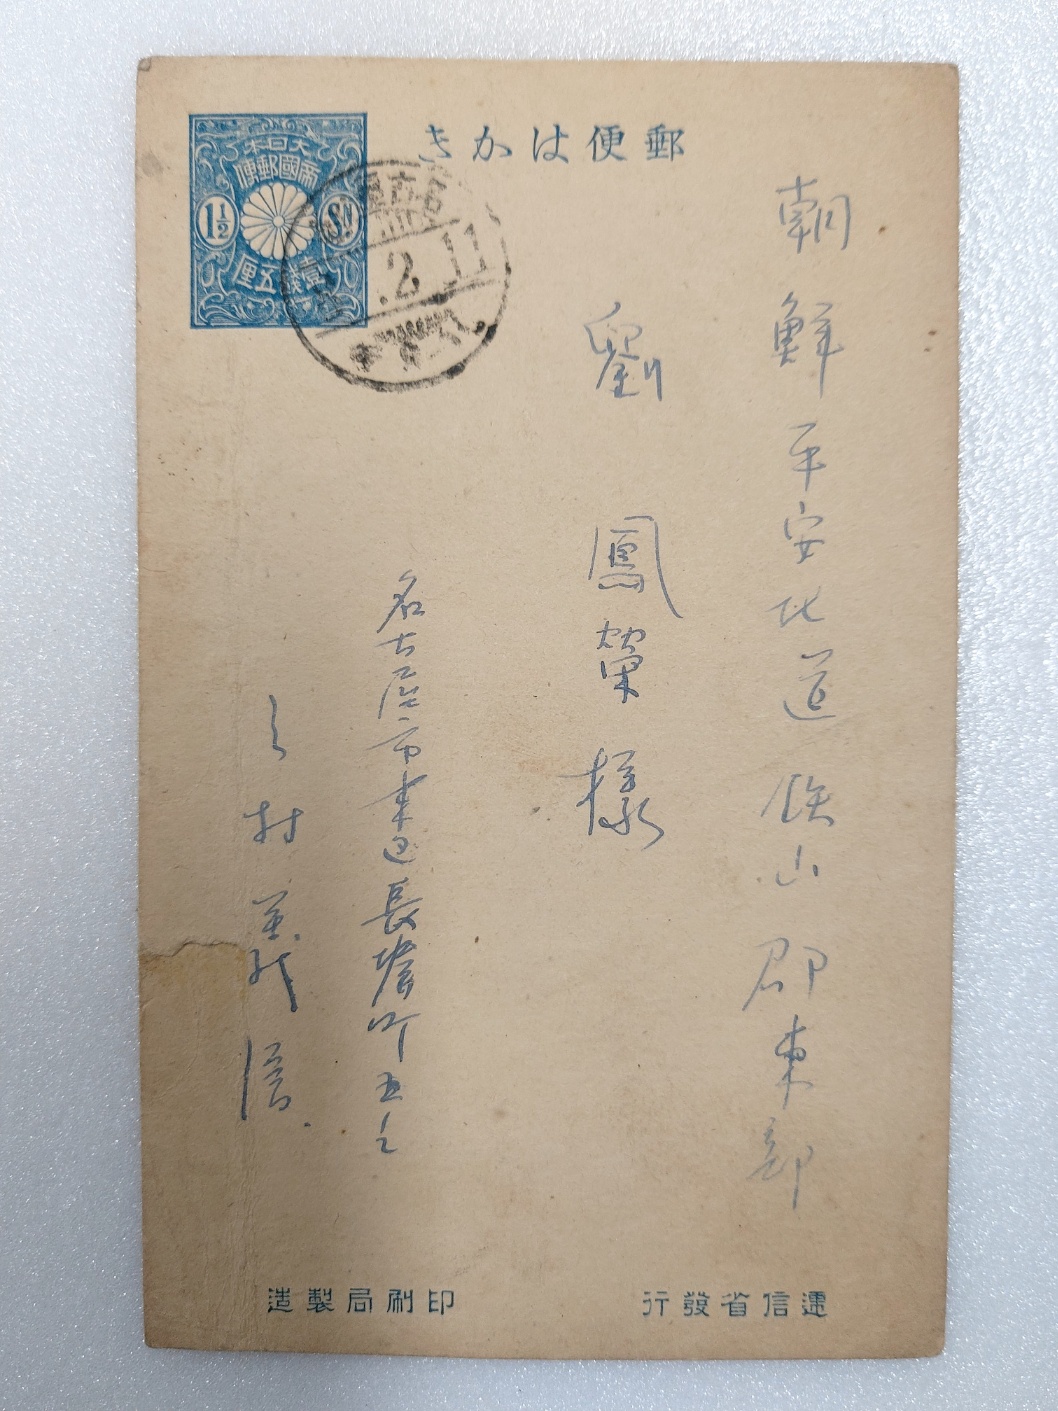 郵便はかき
大日本
帝國郵便
1½ SN
壹錢五厘
名古屋
.2.11
朝鮮平安北道鉄山郡東部
劉鳳榮様
名古屋市東区長塀町五ノ
村義信
逓信省發行
印刷局製造